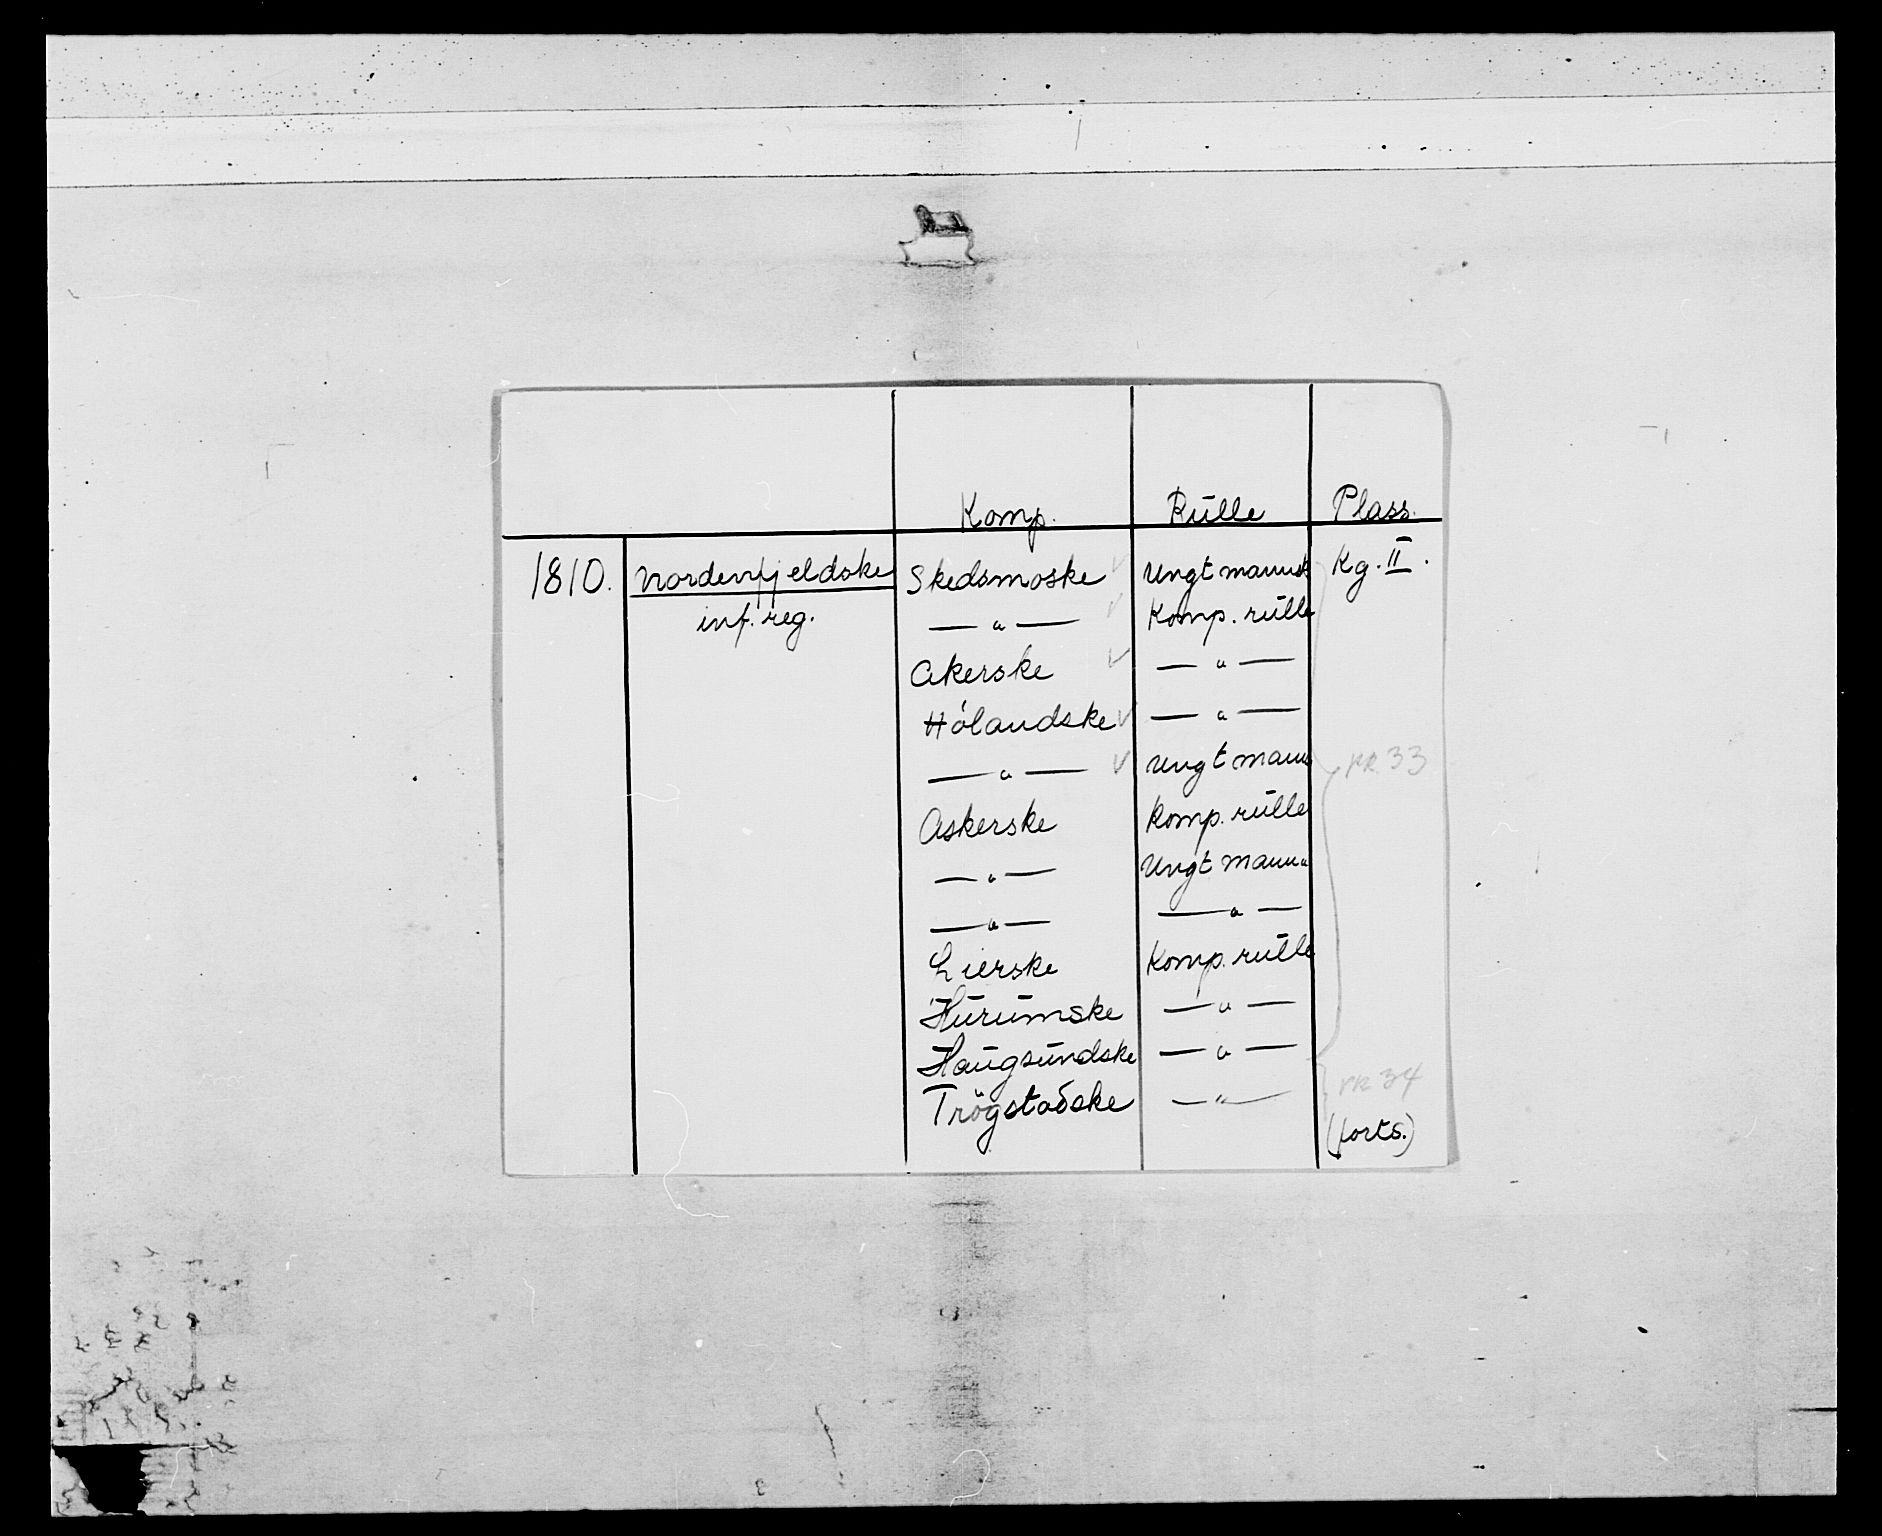 Komp. Rülle Plass.
1810. Nordenfjeldske Skedsmoske Ungt mannsk Kg. II.
inf. reg. — " — Komp. rülle
Akerske — " —
Hólandske — " —
— " — Ungt mann nr. 33
Askerske Komp. rülle
— " — Ungt mann
— " — — " —
Lierske Komp. rülle
Hürümske — " —
Haügsündske — " —
Trögstadske — " — nr 34
(forts.)